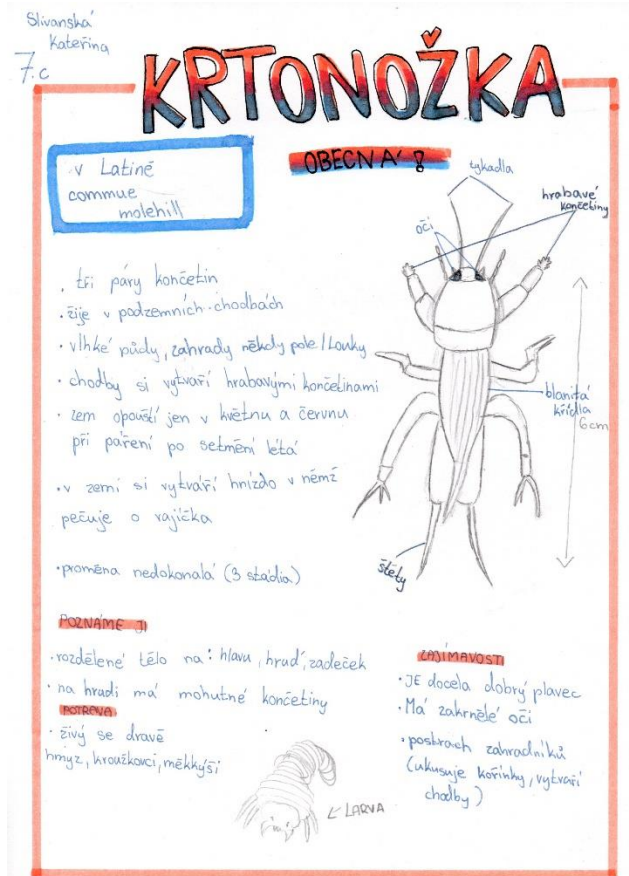 Slivanská
Kateřina
7.c
KRTONOŽKA
OBECNÁ
v Latině
commue
molehill
tykadla
hrabavé
končetiny
oči
. tři páry končetin
• žije v podzemních chodbách
• vlhké půdy, zahrady někdy pole/louky
• chodby si vytvaří hrabavými končetinami
• zem opouští jen v květnu a červnu
při paření po setmění létá
• v zemi si vytváří hnízdo v němž
pečuje o vajíčka
• proměna nedokonalá (3 stádia)
blanitá
křídla
6cm
štěty
POZNÁME JI
• rozdělené tělo na: hlavu, hruď, zadeček
• na hrudi má mohutné končetiny
POTRAVA
• živý se dravě
hmyz, kroužkovci, měkkýši
← LARVA
ZAJÍMAVOSTI
• JE docela dobrý plavec
• Má zakrnělé oči
• postrach zahradníků
(ukusuje kořínky, vytvaří
chodby)